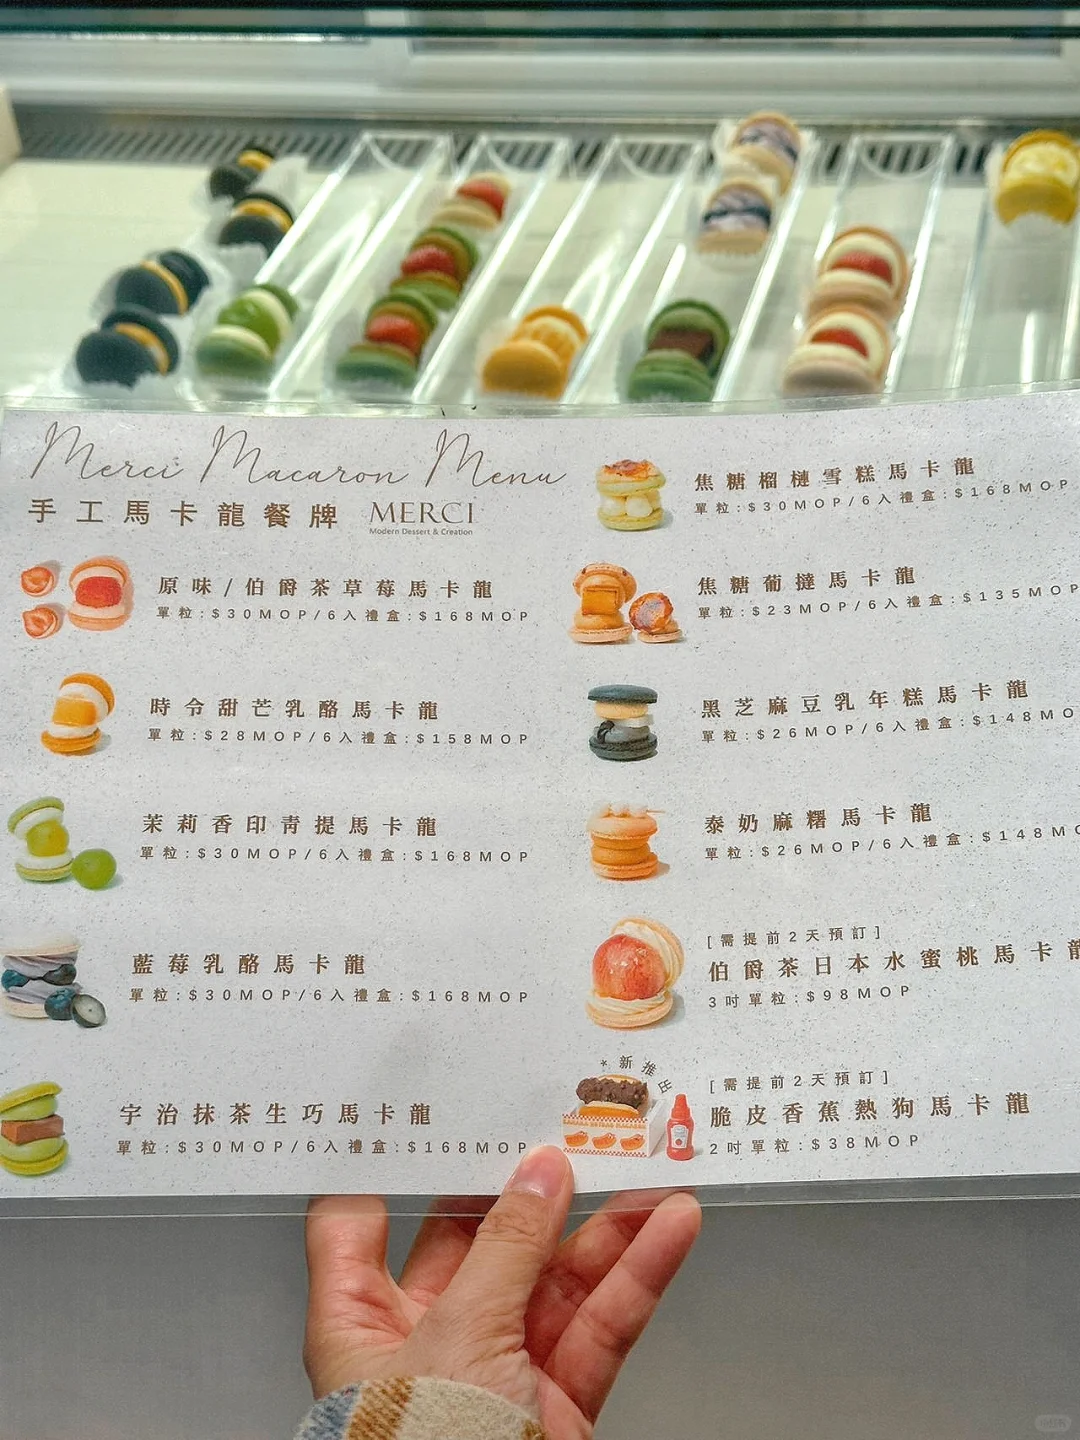 Merci Macaron Menu
手工馬卡龍餐牌 MERCI
Modern Dessert & Creation
原味/伯爵茶草莓馬卡龍
單粒:$30MOP/6入禮盒:$168MOP
時令甜芒乳酪馬卡龍
單粒:$28MOP/6入禮盒:$158MOP
茉莉香印青提馬卡龍
單粒:$30MOP/6入禮盒:$168MOP
藍莓乳酪馬卡龍
單粒:$30MOP/6入禮盒:$168MOP
宇治抹茶生巧馬卡龍
單粒:$30MOP/6入禮盒:$168MOP
焦糖榴槤雪糕馬卡龍
單粒:$30MOP/6入禮盒:$168MOP
焦糖葡撻馬卡龍
單粒:$23MOP/6入禮盒:$135MOP
黑芝麻豆乳年糕馬卡龍
單粒:$26MOP/6入禮盒:$148MO
泰奶麻糬馬卡龍
單粒:$26MOP/6入禮盒:$148MO
[需提前2天預訂]
伯爵茶日本水蜜桃馬卡龍
3吋單粒:$98MOP
*新推出
[需提前2天預訂]
脆皮香蕉熱狗馬卡龍
2吋單粒:$38MOP